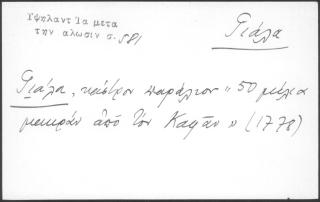 Υψηλαντ Τα μετα
την αλωσιν σ. 581
Γιάλα
Γιάλα, κάστρον παράλιον " 50 μίλια
μακράν από τον Καφᾶν " (1778)